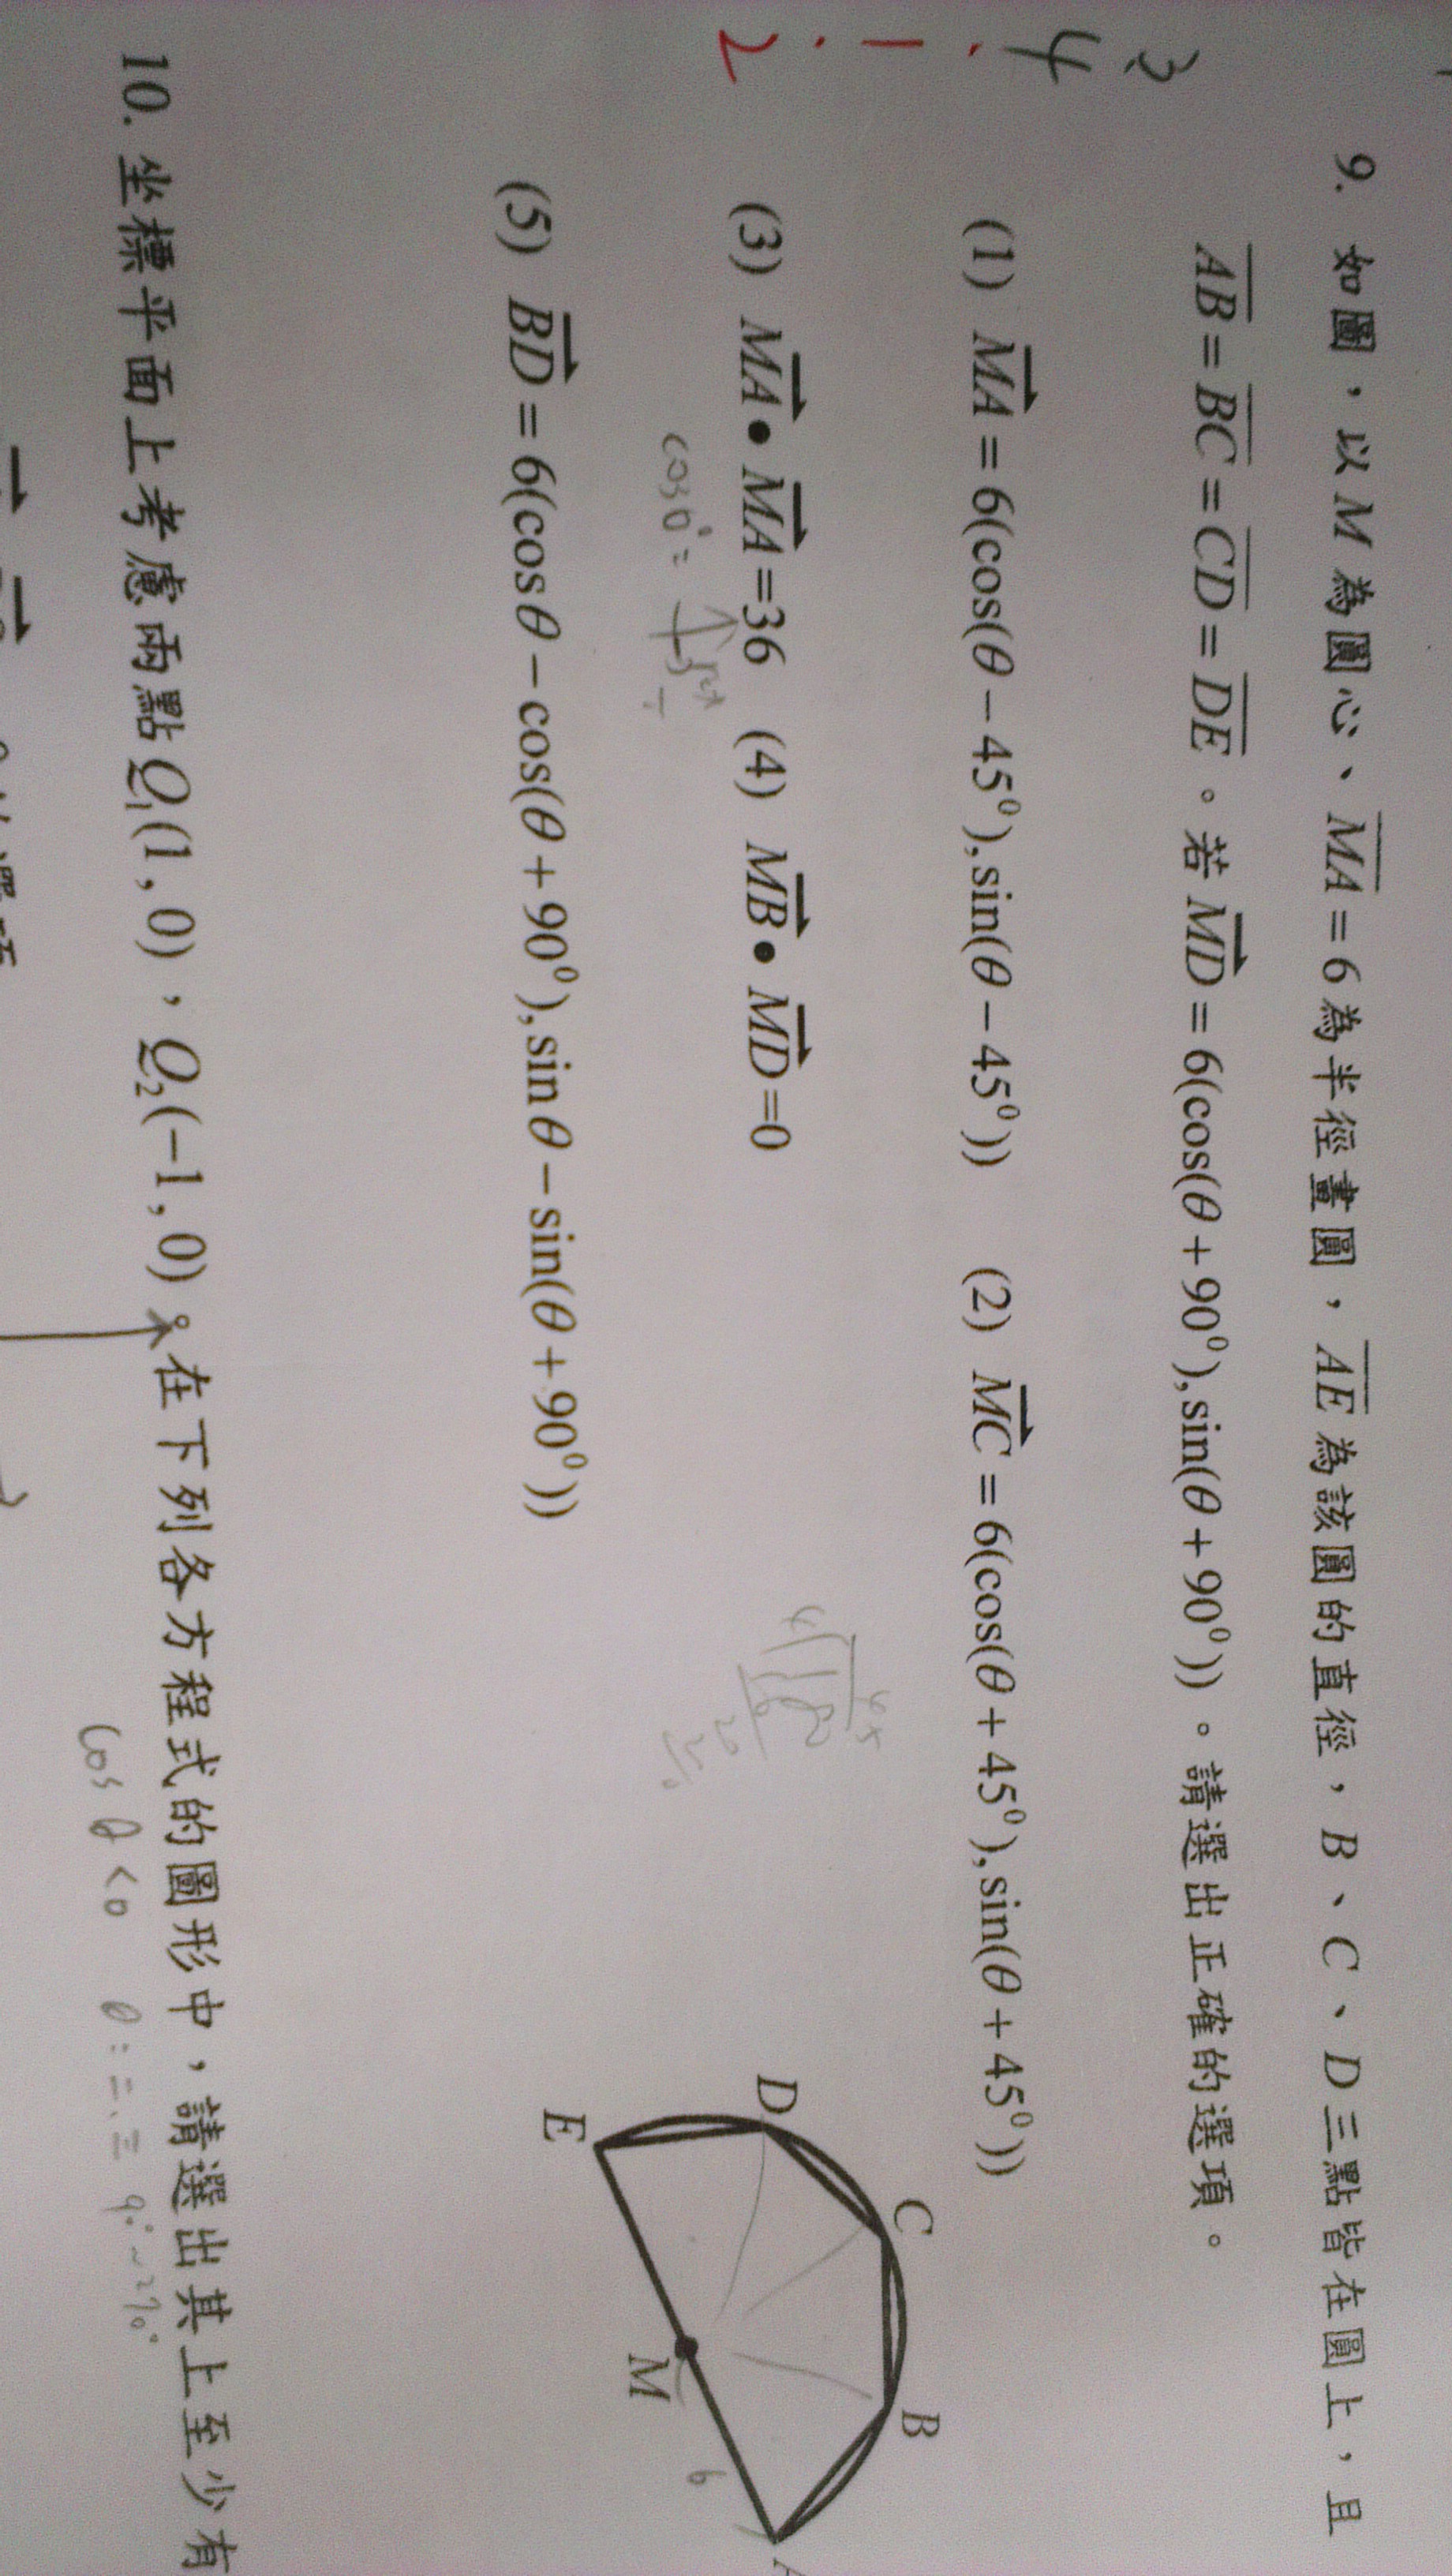 9. 如圖，以 M 為圓心、MA = 6 為半徑畫圓，AE 為該圓的直徑，B、C、D 三點皆在圓上，且
AB = BC = CD = DE。若 MD = 6(cos(θ + 90⁰), sin(θ + 90⁰))。請選出正確的選項。
3
4
(1) MA = 6(cos(θ − 45⁰), sin(θ − 45⁰)) (2) MC = 6(cos(θ + 45⁰), sin(θ + 45⁰))
(3) MA • MA =36 (4) MB • MD =0
(5) BD = 6(cos θ − cos(θ + 90⁰), sin θ − sin(θ + 90⁰))
D
C
B
E
M
6
A
10. 坐標平面上考慮兩點 Q₁(1, 0)，Q₂(−1, 0)。在下列各方程式的圖形中，請選出其上至少有
cos θ < 0